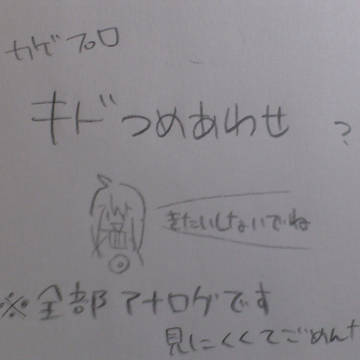 カゲプロ
キドつめあわせ ?
きたいしないでね
※全部アナログです
見にくくてごめん